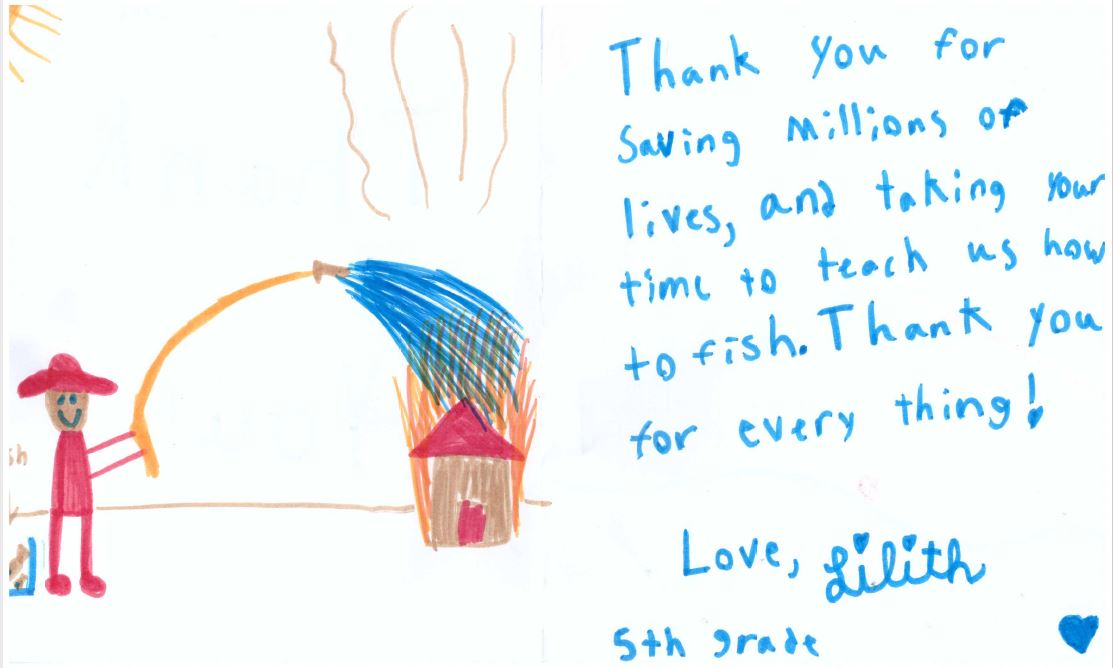 Thank you for
saving millions of
lives, and taking your
time to teach us how
to fish. Thank you
for every thing!
Love, Lilith
5th grade
sh